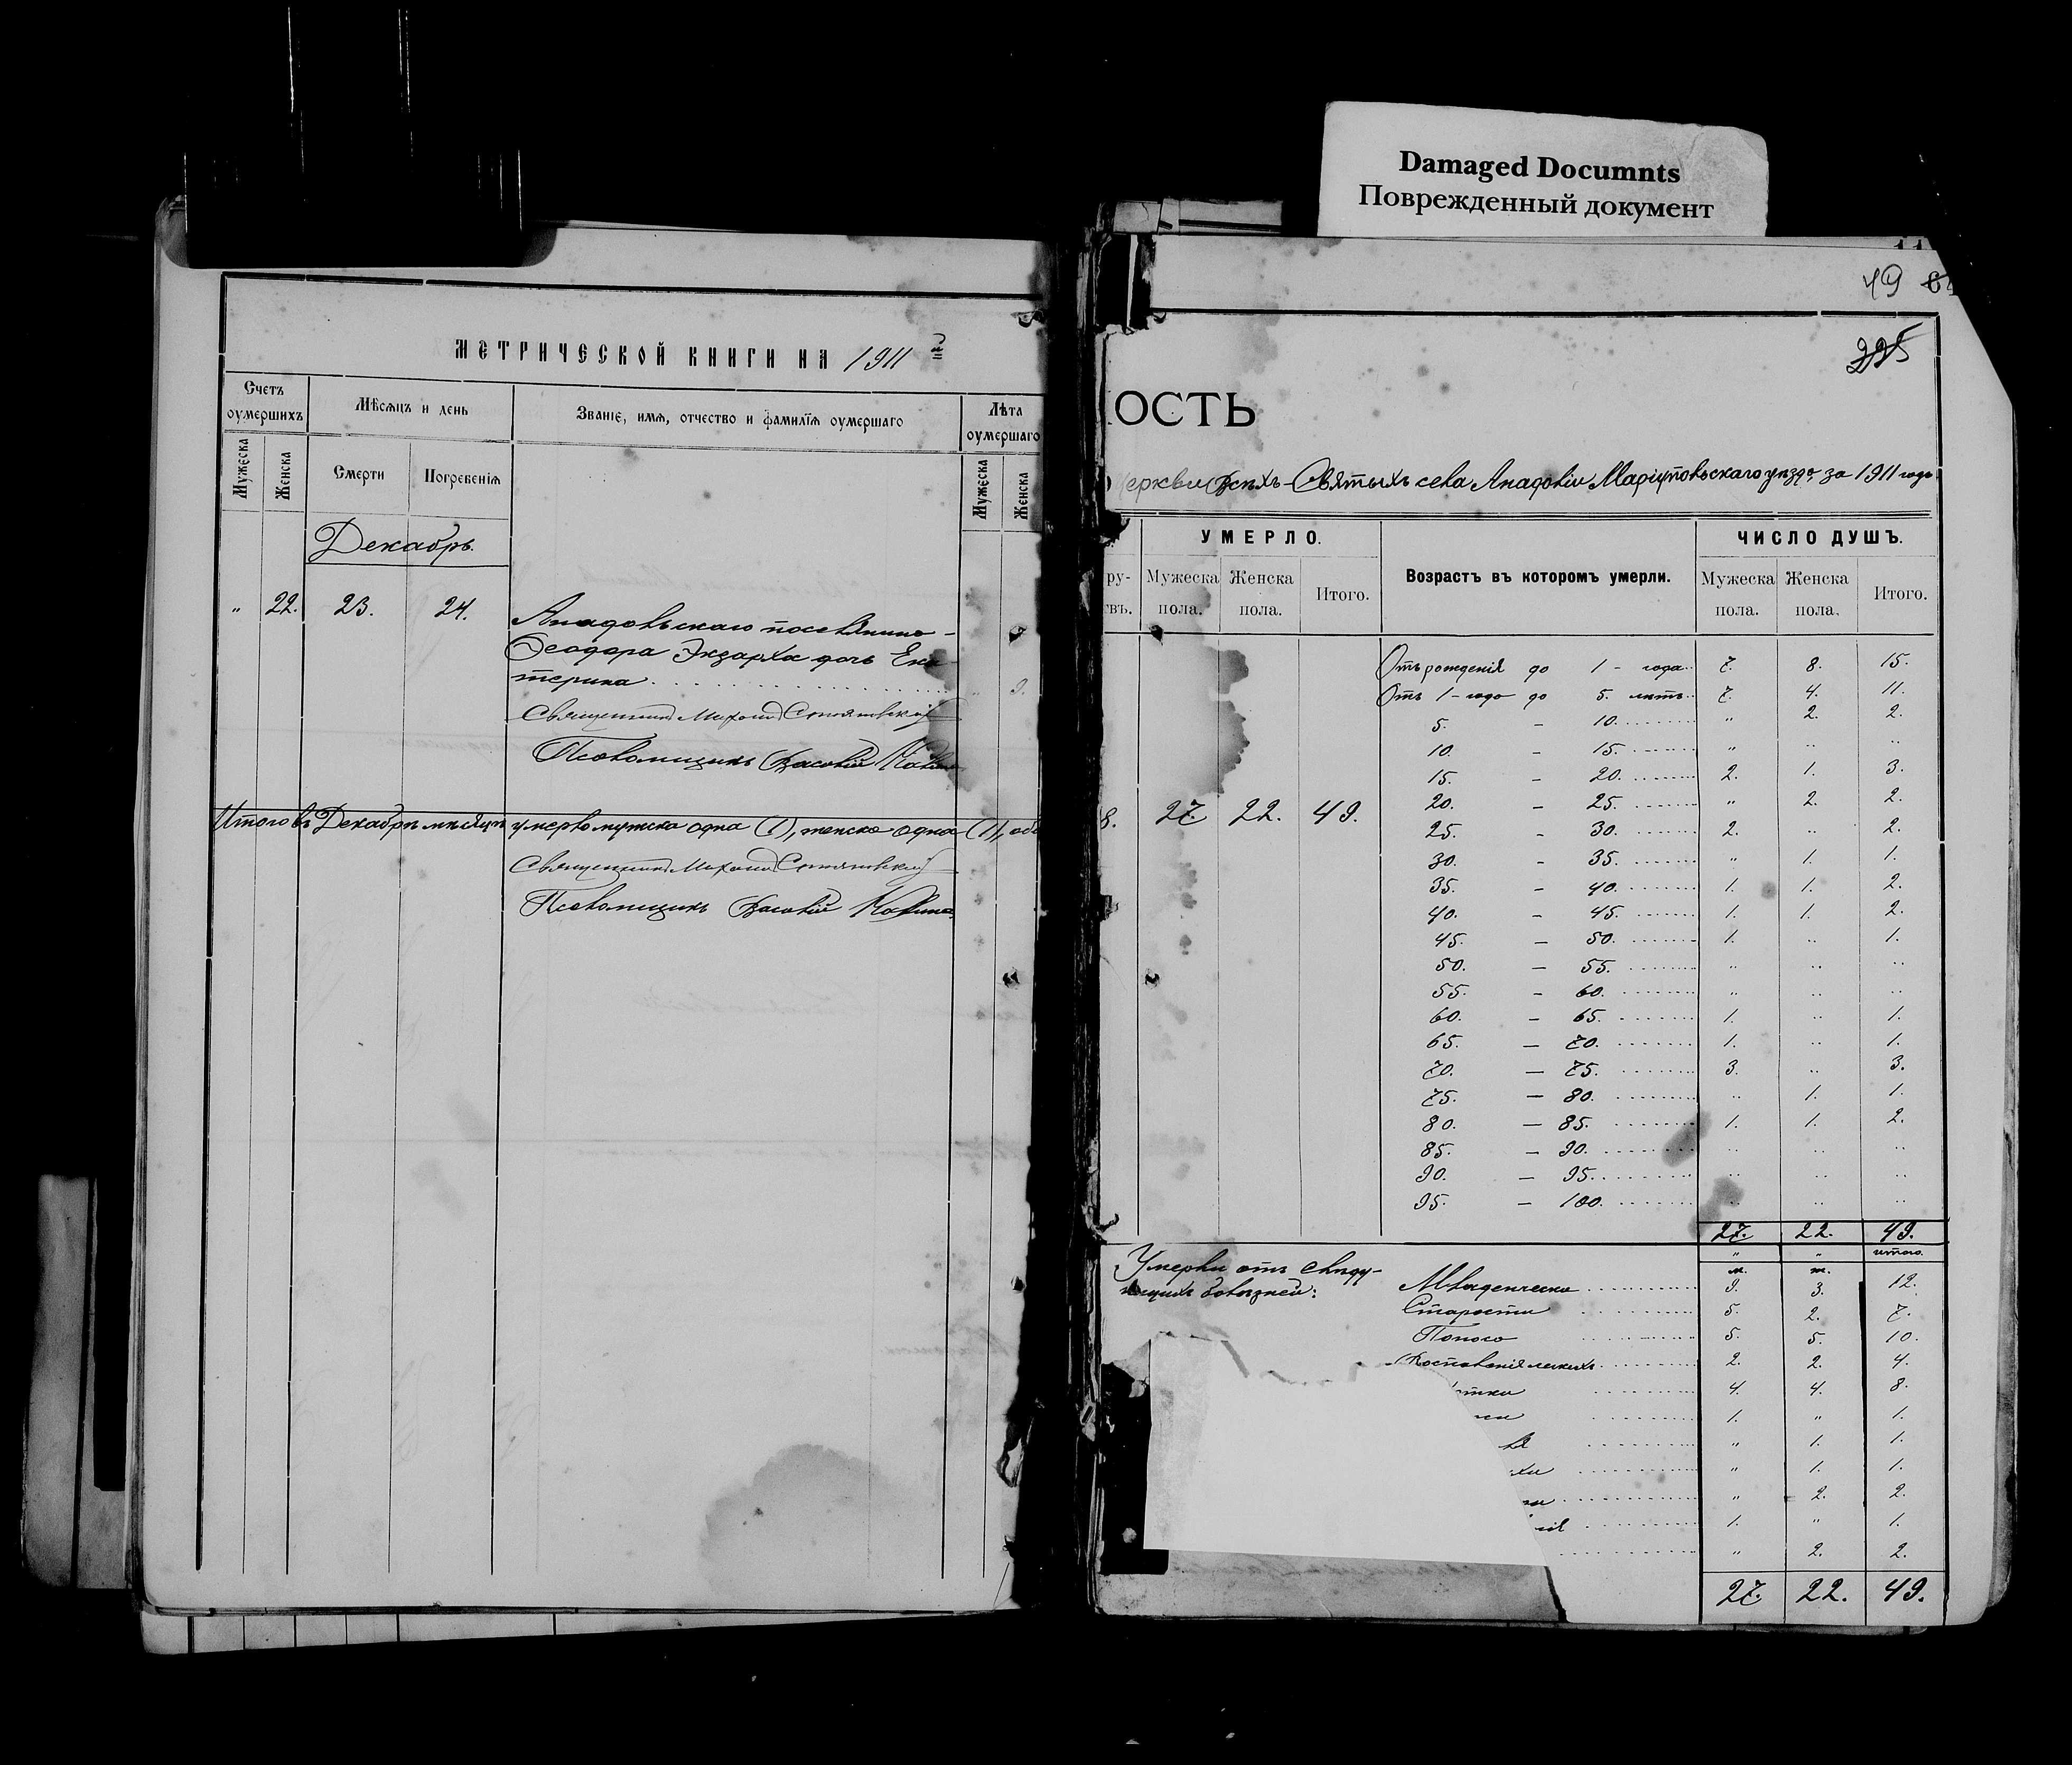 Damaged Documnts
Поврежденный документ
МЕТРИЧЕСКОЙ КНИГИ НА 1911
Счетъ оумершихъ
Мѣсяцъ и день
Званіе, имя, отчество и фамилія оумершаго
Лѣта оумершаго
Мужеска
Женска
Смерти
Погребенія
Мужеска
Женска
Декабрь.
" 22. 23. 24.
Анадольскаго поселянина
Ѳеодора Экзарха дочь Ека-
терина 9.
Священникъ Михаилъ
Псаломщикъ Василій
Итого въ Декабрѣ мѣсяцѣ умерло мужска одна (1), женска одна (1), обо
Священникъ Михаилъ
Псаломщикъ Василій
49
225
ОСТЬ
церкви Всѣхъ-Святыхъ села Анадоліи Маріупольскаго уѣзда за 1911 годъ
УМЕРЛО.
Возрастъ въ которомъ умерли.
ЧИСЛО ДУШЪ.
ру-
твъ.
Мужеска пола.
Женска пола.
Итого.
Мужеска пола.
Женска пола.
Итого.
8. 27. 22. 49.
Отъ рожденія до 1 - года 7. 8. 15.
Отъ 1 - года до 5. лѣтъ 7. 4. 11.
5. - 10. " 2. 2.
10. - 15. " " "
15. - 20. 2. 1. 3.
20. - 25. " 2. 2.
25. - 30. 2. " 2.
30. - 35. " 1. 1.
35. - 40. 1. 1. 2.
40. - 45. 1. 1. 2.
45. - 50. 1. " 1.
50. - 55. " " "
55. - 60. " " "
60. - 65. 1. " 1.
65. - 70. 1. " 1.
70. - 75. 3. " 3.
75. - 80. " 1. 1.
80. - 85. 1. 1. 2.
85. - 90. " " "
90. - 95. " " "
95. - 100. " " "
27. 22. 49.
" " итого.
м. ж.
Умерли отъ слѣду-
ющихъ болѣзней:
Младенческа 9. 3. 12.
Старости 5. 2. 7.
Поноса 5. 5. 10.
Воспаленія легкихъ 2. 2. 4.
4. 4. 8.
1. " 1.
" 1. 1.
" 1. 1.
" 2. 2.
1. " 1.
" 2. 2.
27. 22. 49.